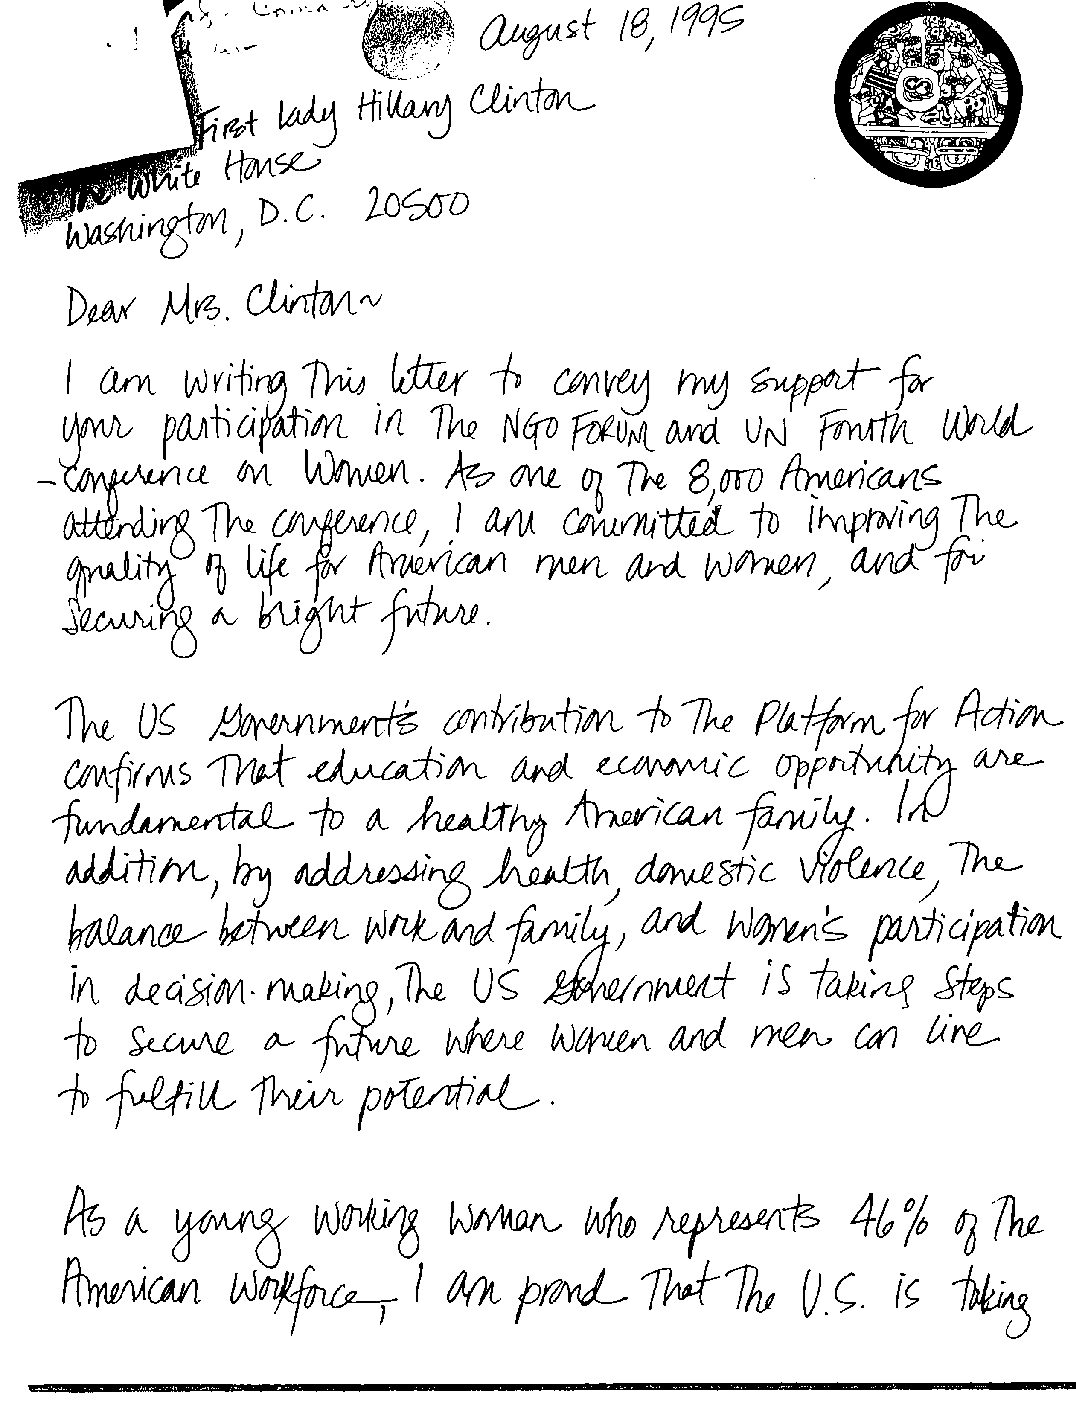 August 18, 1995
First Lady Hillary Clinton
The White House
Washington, D.C. 20500
Dear Mrs. Clinton~
I am writing This letter to convey my support for
your participation in The NGO FORUM and UN Fourth World
Conference on Women. As one of The 8,000 Americans
attending The conference, I am committed to improving The
quality of life for American men and women, and for
securing a bright future.
The US Government's contribution to The Platform for Action
confirms That education and economic opportunity are
fundamental to a healthy American family. In
addition, by addressing health, domestic violence, The
balance between work and family, and women's participation
in decision-making, The US Government is taking steps
to secure a future where women and men can live
to fulfill Their potential.
As a young working woman who represents 46% of The
American workforce, I am proud That The U.S. is taking